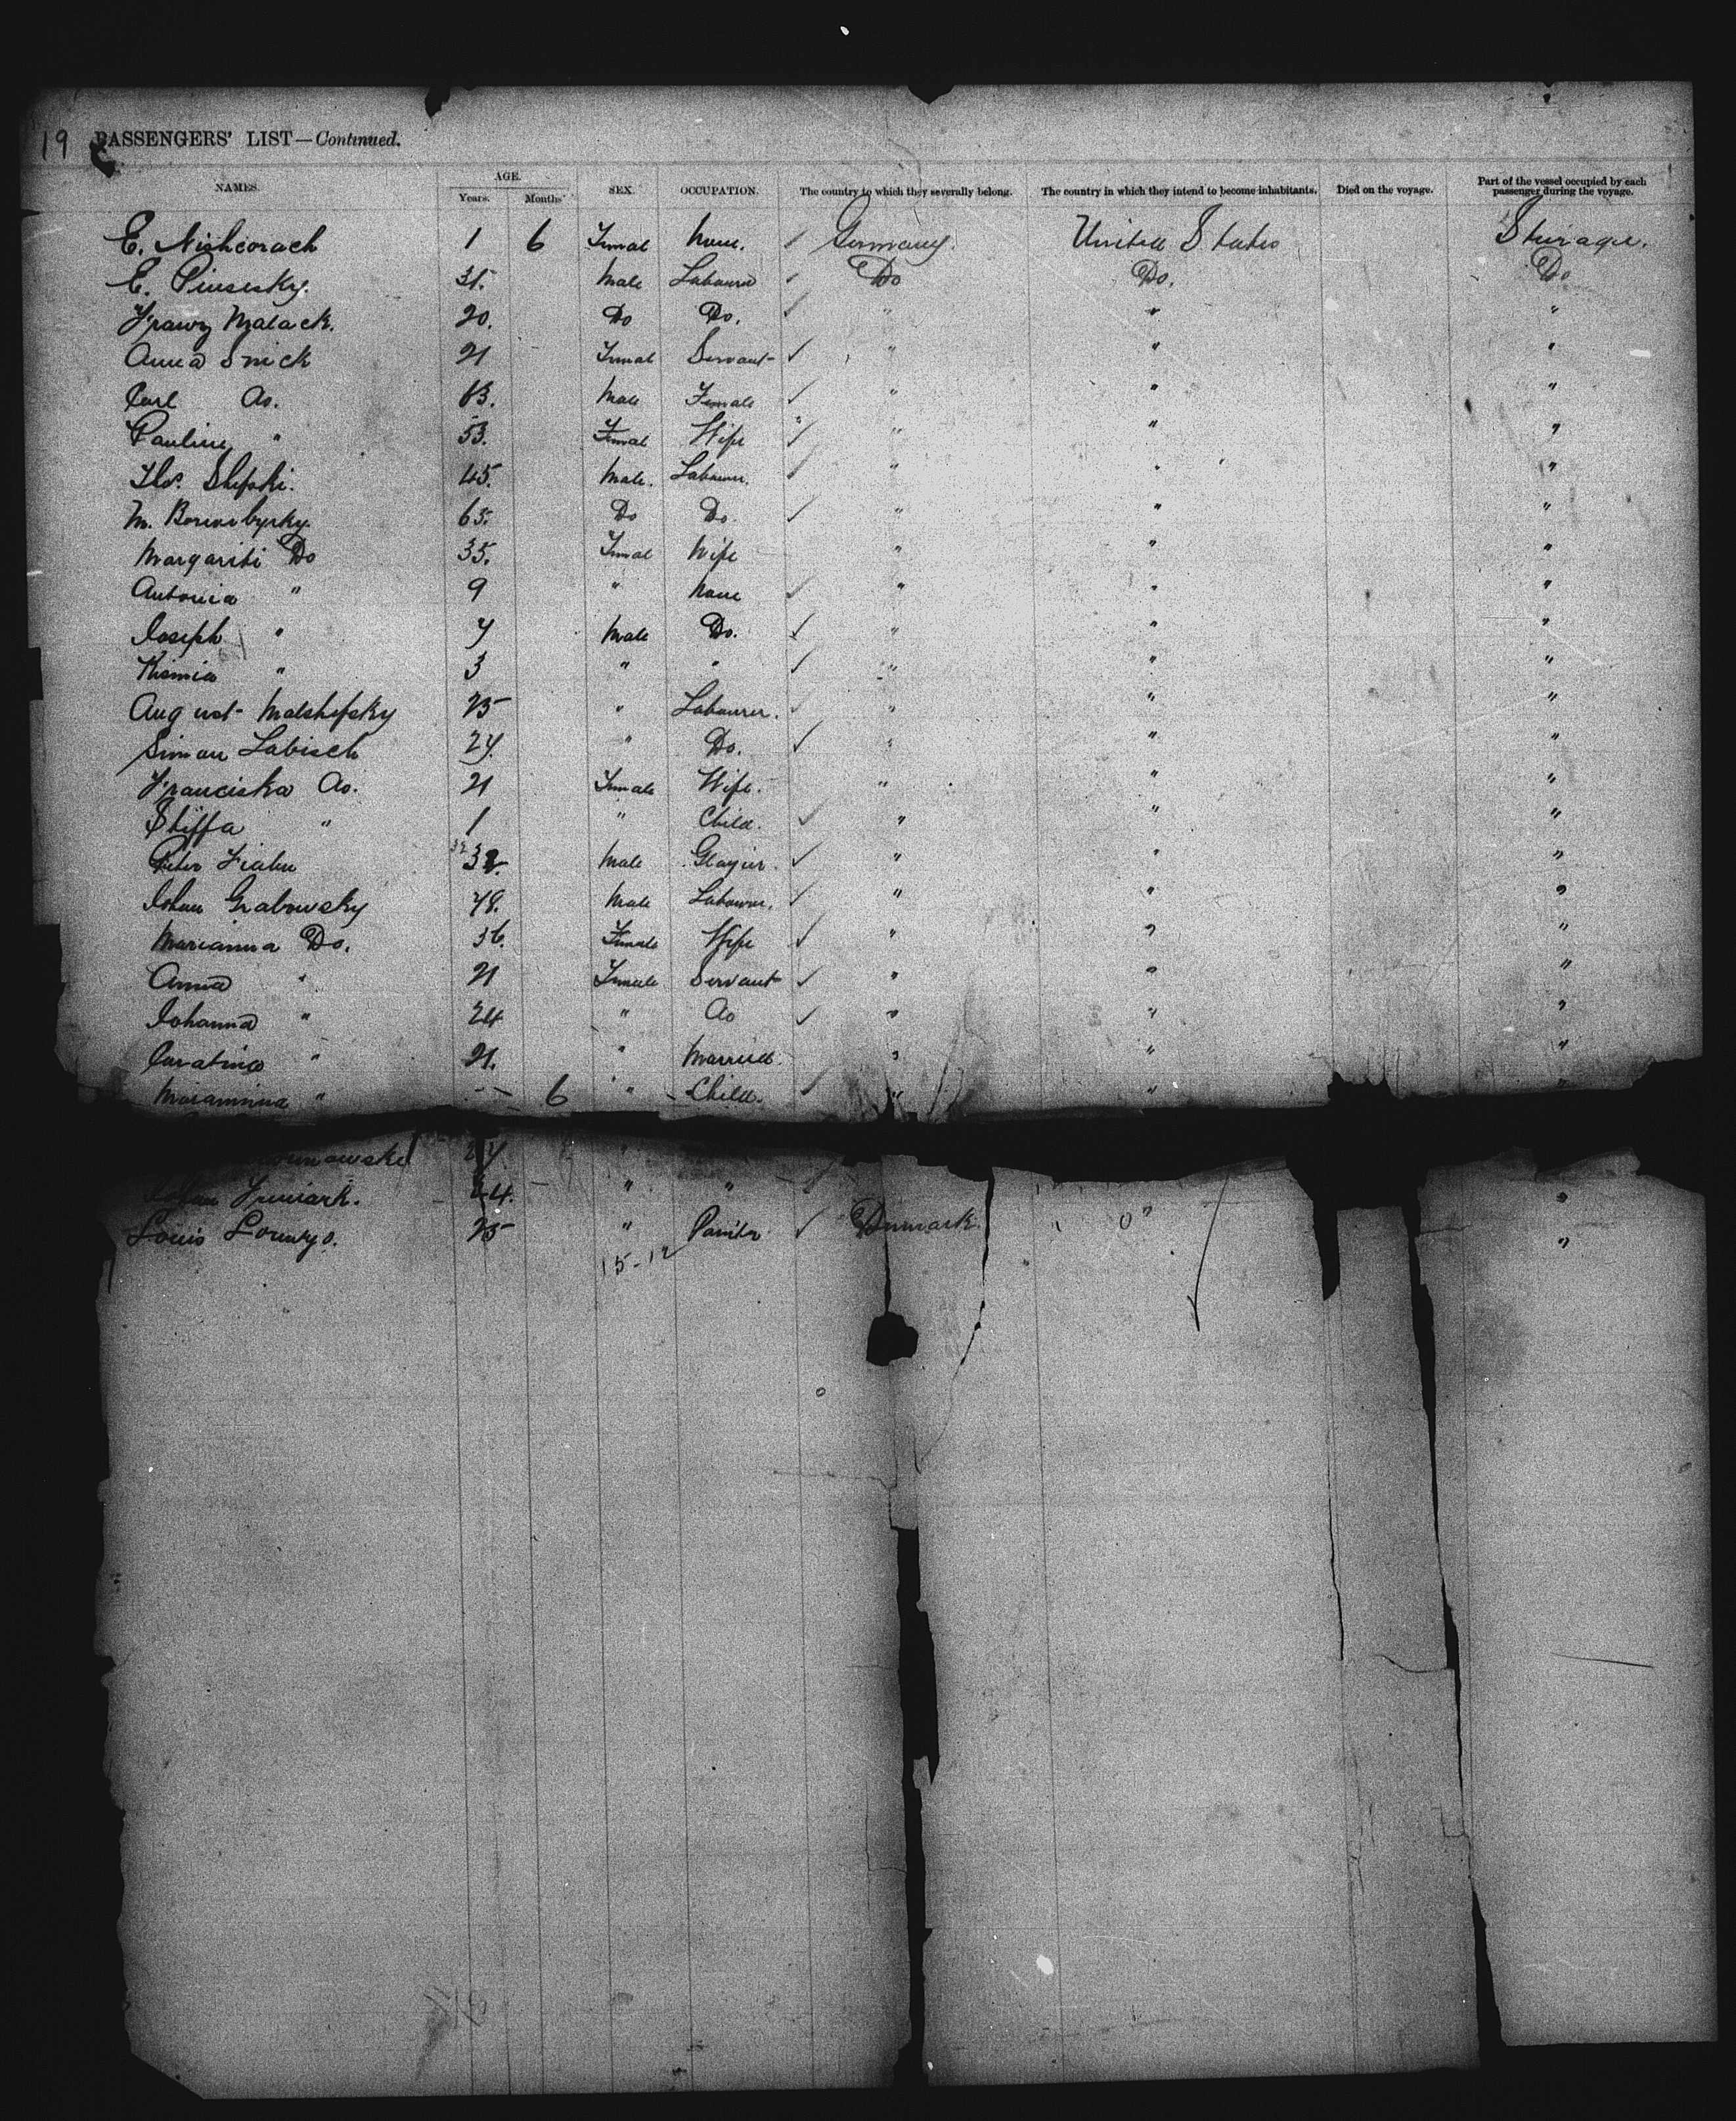 19 PASSENGERS' LIST—Continued.
NAMES. AGE. SEX. OCCUPATION. The country to which they severally belong. The country in which they intend to become inhabitants. Died on the voyage. Part of the vessel occupied by each passenger during the voyage.
Years. Months
E. Nishcorach 1 6 Femal None. Germany. United States Steirage.
E. Pinsesky. 31. Male Labourer Do Do. Do
Frawz Malack. 20. Do Do. " " "
Anna Snick 21 Femal Servant " " "
Carl Do. 63. Male Female " "
Pauline " 53. Femal Wife " " "
Shefski. 45. Male. Labourer. " " "
M. 65. Do Do. " " "
Margariti Do 35. Femal Wife " " "
Antonia " 9 " None " " "
Joseph " 7 Male Do. " " "
" 3 " " " " "
August Malshefsky 25 " Labourer. " " "
Simon Labisch 27. " Do. " " "
Franciska Do. 21 Female Wife. " " "
Stiffa " 1 " Child. " " "
Peter 32 Male Glazier. " " "
Johan Grabowsky 48. Male Labourer. " " "
Marianna Do. 36. Female Wife " " "
Anna " 21 Female Servant " " "
Johanna " 24 " Do " " "
" 21. " Married. " " "
" -- 6 " Child. " " "
"
Johan 24. " " "
Louis Lorenzo. 25 " Painter Denmark. "
15-12